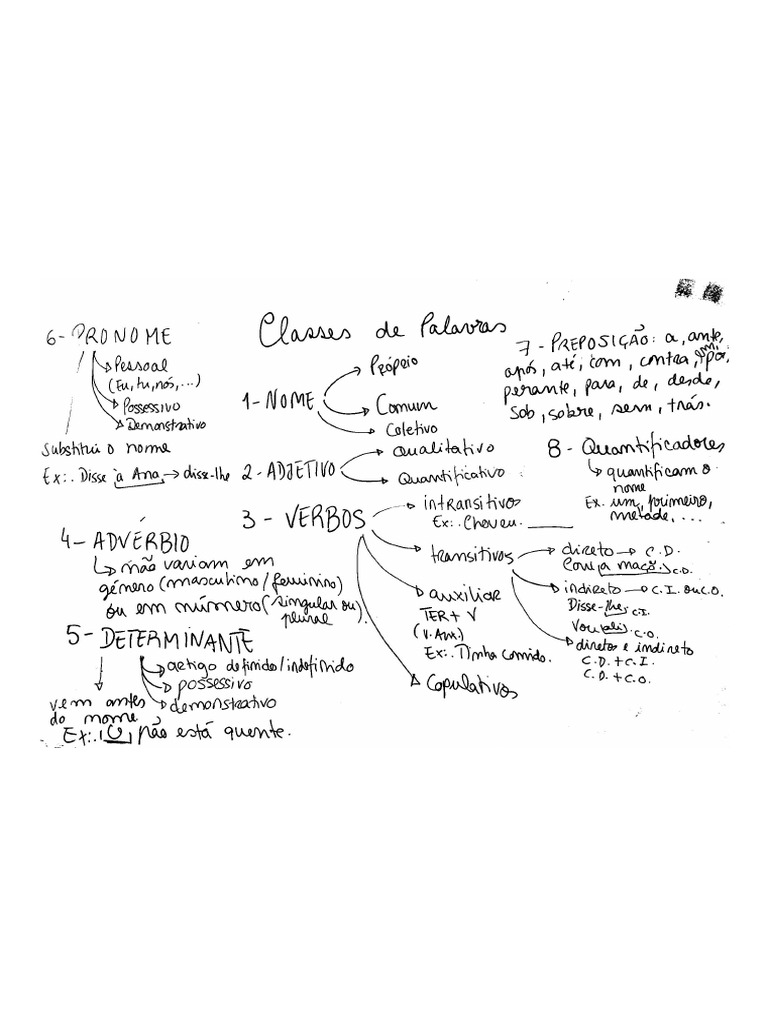 Classes de Palavras
1- NOME
Próprio
Comum
Coletivo
2- ADJETIVO
Qualitativo
Quantificativo
3 - VERBOS
intransitivos
Ex:. Choveu.
transitivos
direto → C.D.
Comi a maçã. C.D.
indireto → C.I. ou C.O.
Disse-lhe. C.I.
Vou ali. C.O.
diretos e indireto
C.D. + C.I.
C.D. + C.O.
auxiliar
TER + V
(V. Aux.)
Ex:. Tinha comido.
Copulativos
4- ADVÉRBIO
não variam em
género (masculino/feminino)
ou em número (singular ou
plural).
5- DETERMINANTE
artigo definido/indefinido
possessivo
demonstrativo
vem antes
do nome
Ex:. O pão está quente.
6- PRONOME
Pessoal
(Eu, tu, nós, ...)
Possessivo
Demonstrativo
Substitui o nome
Ex:. Disse à Ana → disse-lhe
7 - PREPOSIÇÃO: a, ante,
após, até, com, contra, em, por,
perante, para, de, desde,
Sob, sobre, sem, trás.
8 - Quantificadores
quantificam o
nome
Ex. um, primeiro,
metade, ...